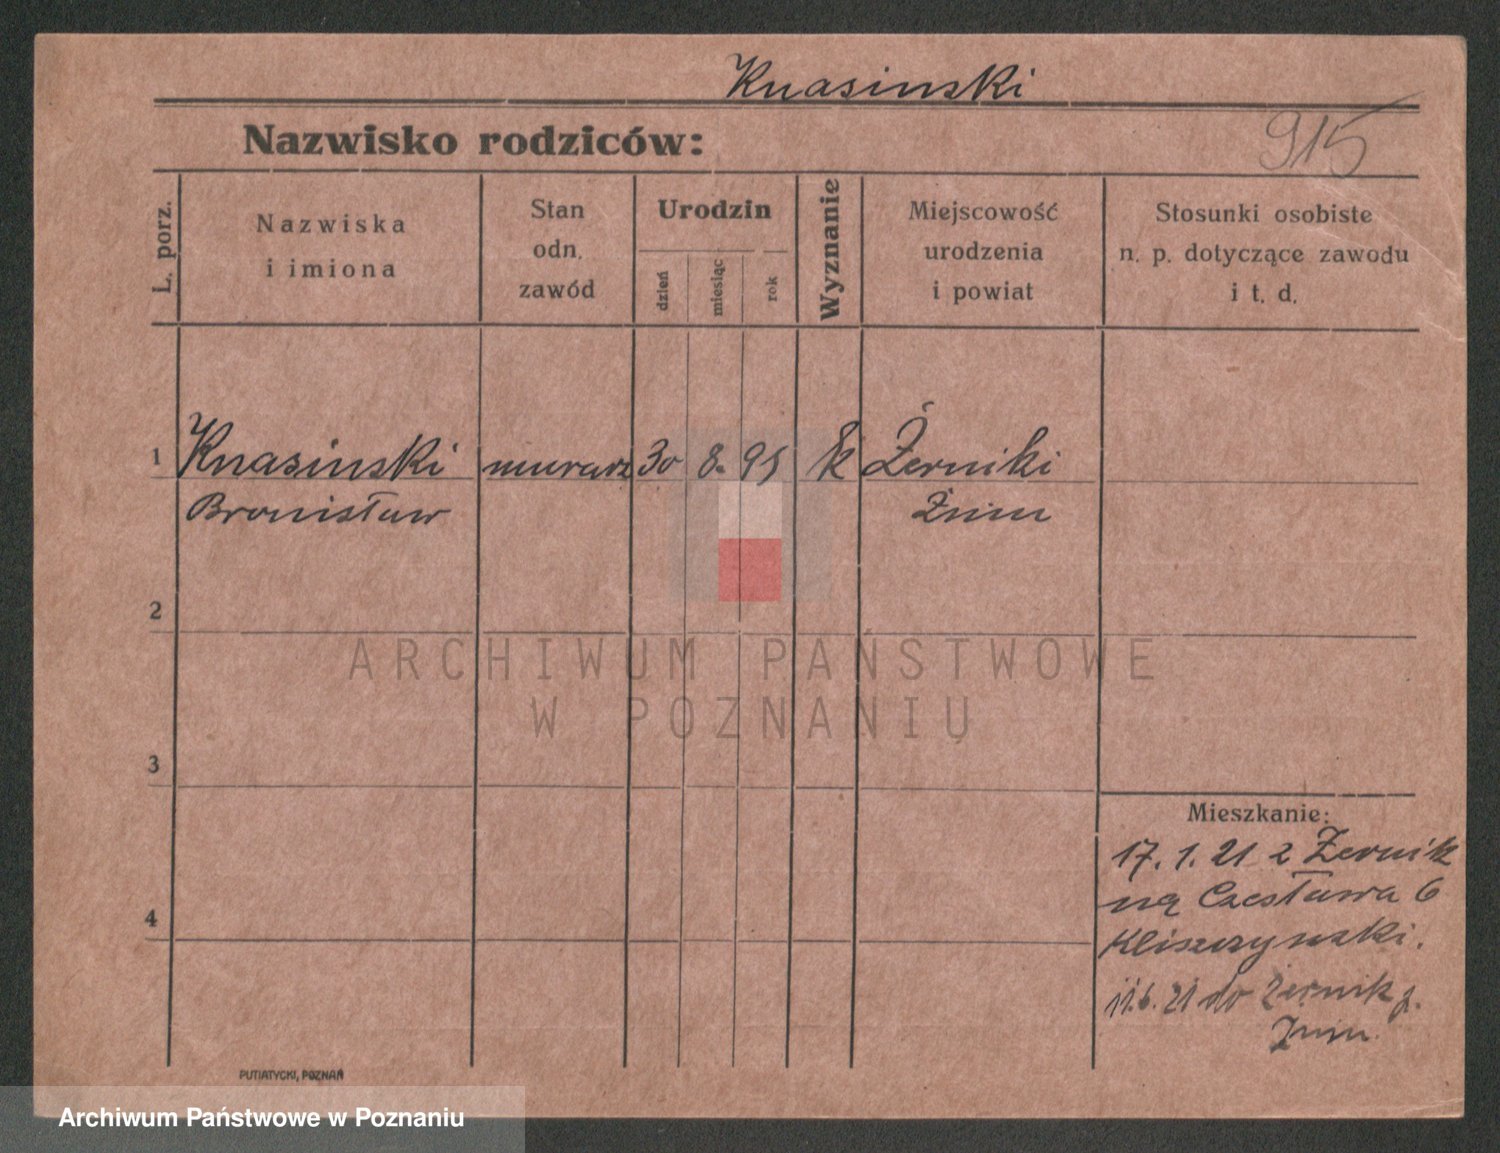 Knasinski
Nazwisko rodziców:
915
L. porz.
Nazwiska
i imiona
Stan
odn.
zawód
Urodzin
dzień
miesiąc
rok
Wyznanie
Miejscowość
urodzenia
i powiat
Stosunki osobiste
n. p. dotyczące zawodu
i t. d.
1
Knasinski murarz 30 8. 95 k Żerniki
Bronisław Żnin
2
ARCHIWUM PAŃSTWOWE
W POZNANIU
3
Mieszkanie:
17. 1. 21 z Żernik
na Czesława 6
Kliszczynski.
4
11.6.21 do Żernik p.
Żnin.
PUTIATYCKI, POZNAŃ
Archiwum Państwowe w Poznaniu